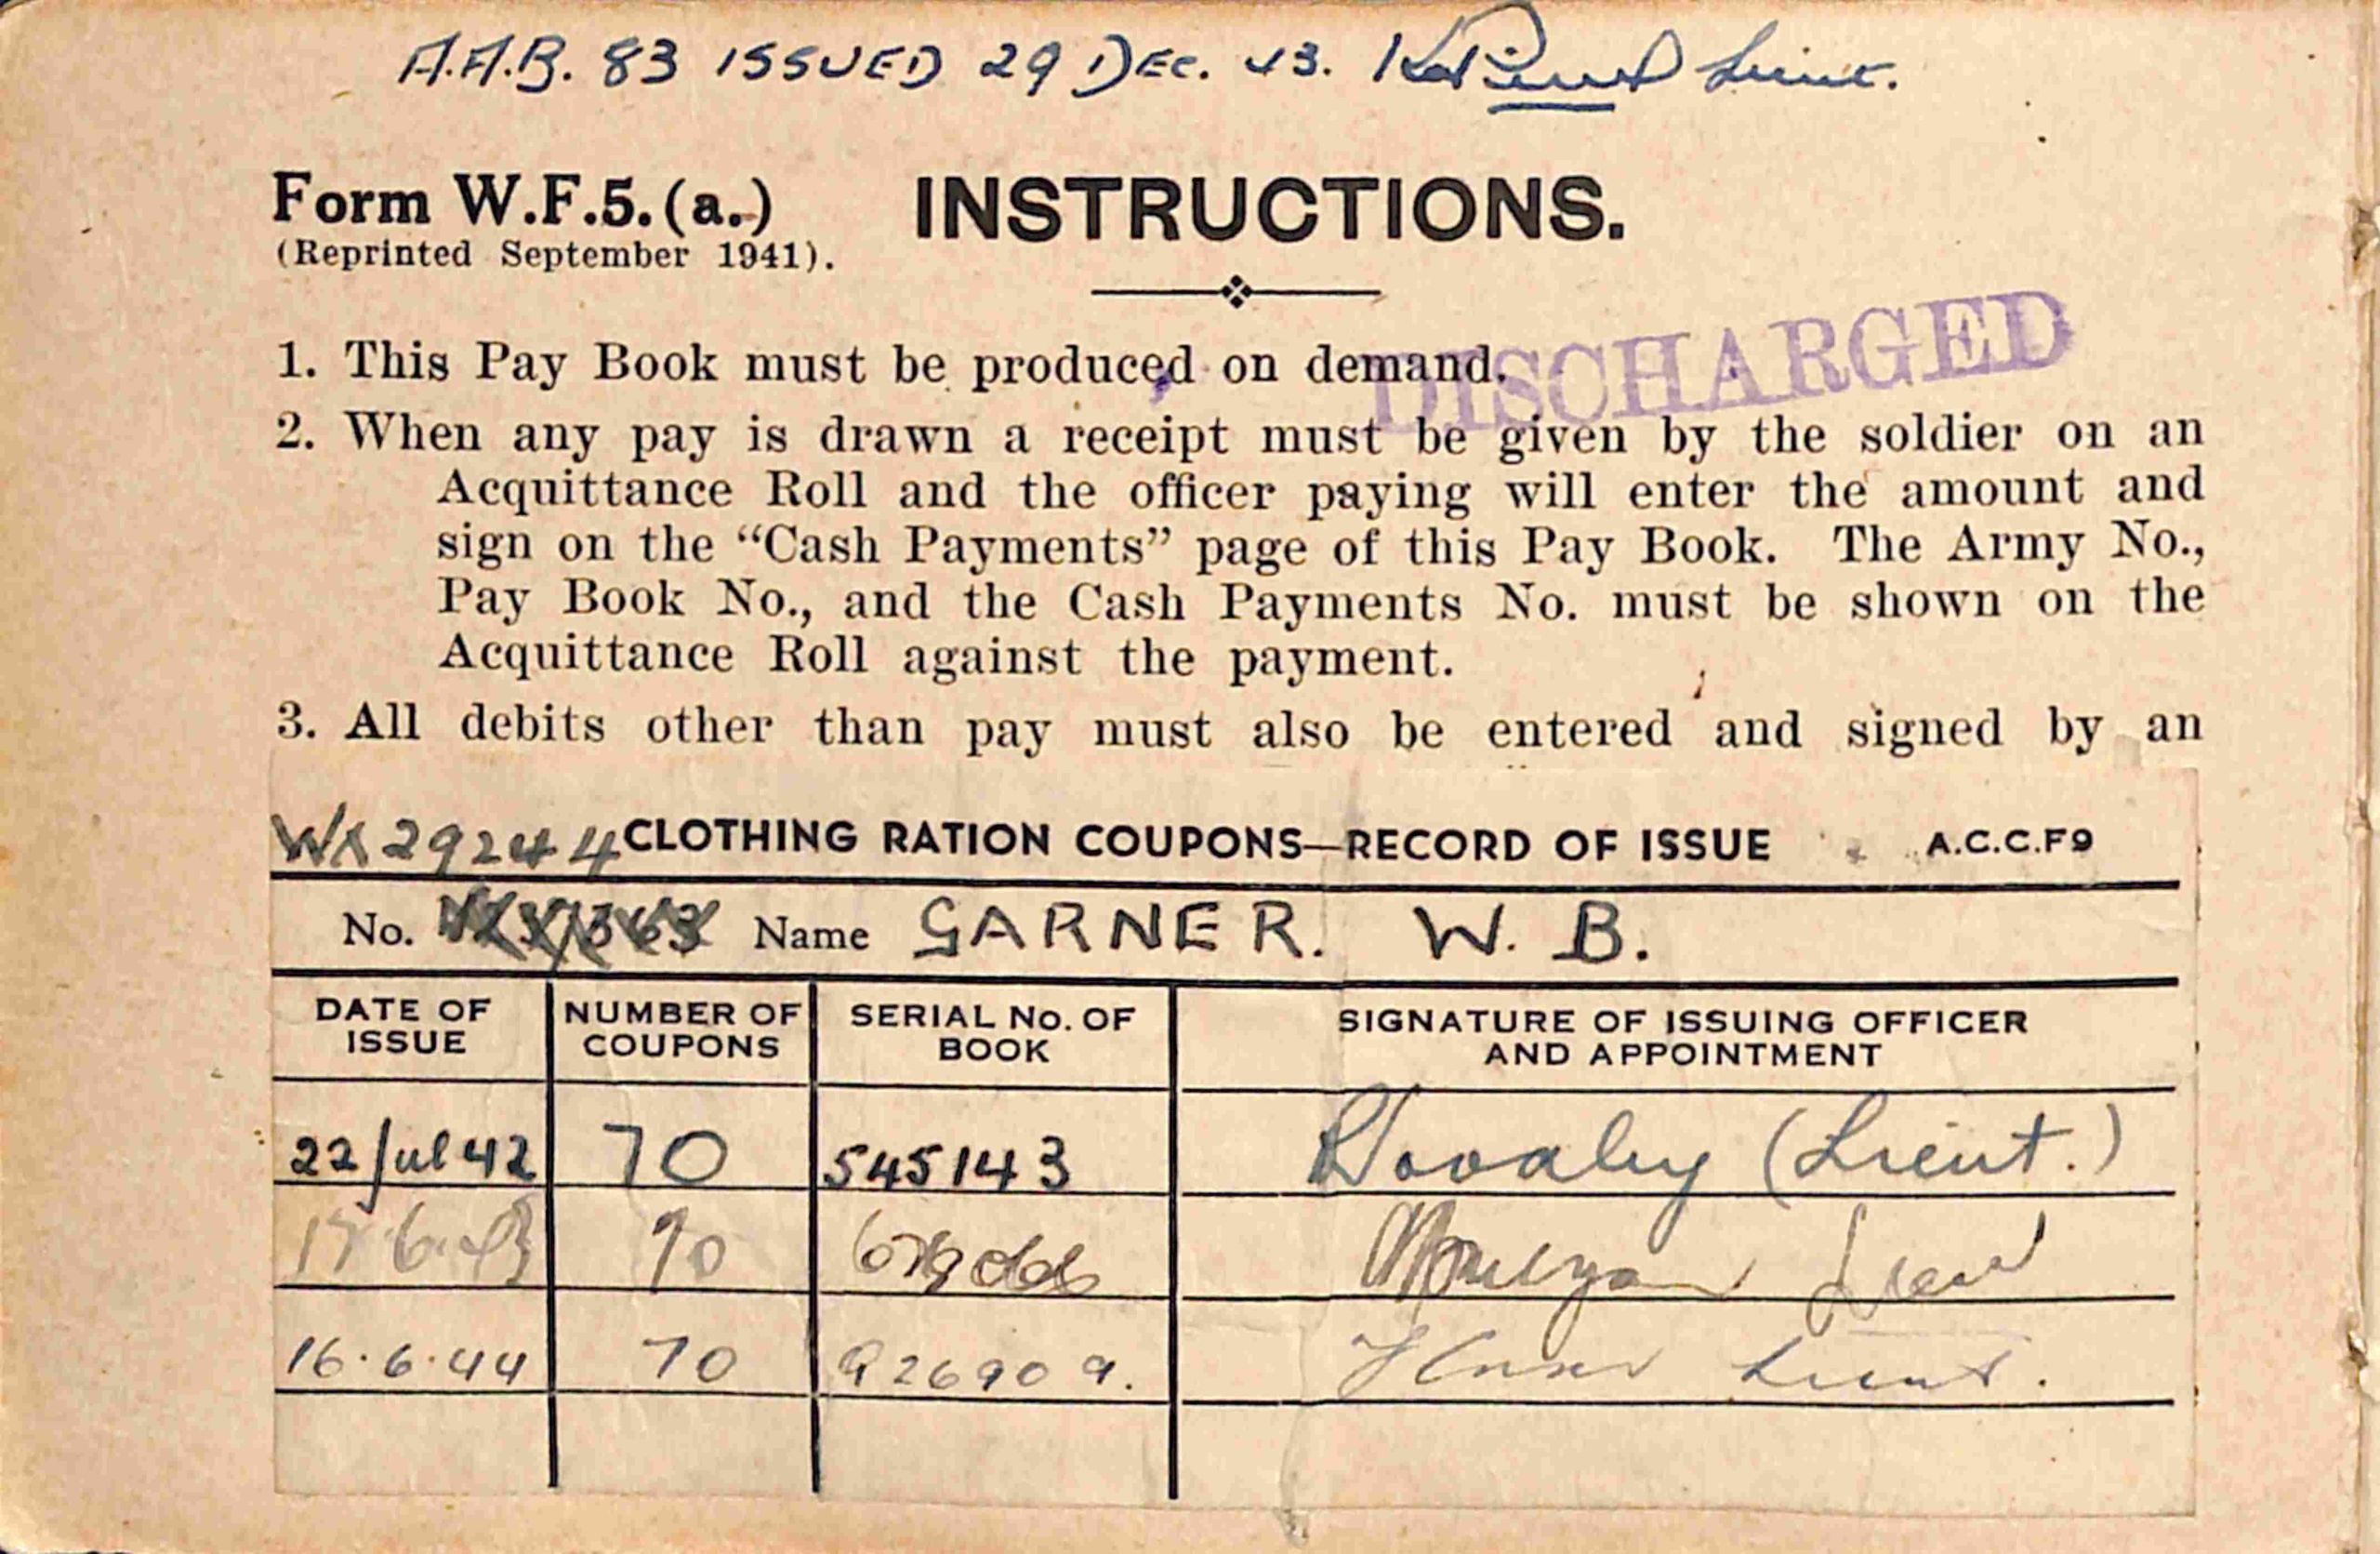 A.A.B. 83 ISSUED 29 DEC. 43. Lieut.
Form W.F.5.(a.) INSTRUCTIONS.
(Reprinted September 1941).
DISCHARGED
1. This Pay Book must be produced on demand.
2. When any pay is drawn a receipt must be given by the soldier on an
Acquittance Roll and the officer paying will enter the amount and
sign on the “Cash Payments” page of this Pay Book. The Army No.,
Pay Book No., and the Cash Payments No. must be shown on the
Acquittance Roll against the payment.
3. All debits other than pay must also be entered and signed by an
WX29244 CLOTHING RATION COUPONS—RECORD OF ISSUE A.C.C.F9
No. Name GARNER. W. B.
DATE OF ISSUE NUMBER OF COUPONS SERIAL No. OF BOOK SIGNATURE OF ISSUING OFFICER AND APPOINTMENT
22/Jul 42 70 545143 (Lieut.)
16.6.44 70 926909. Lieut.